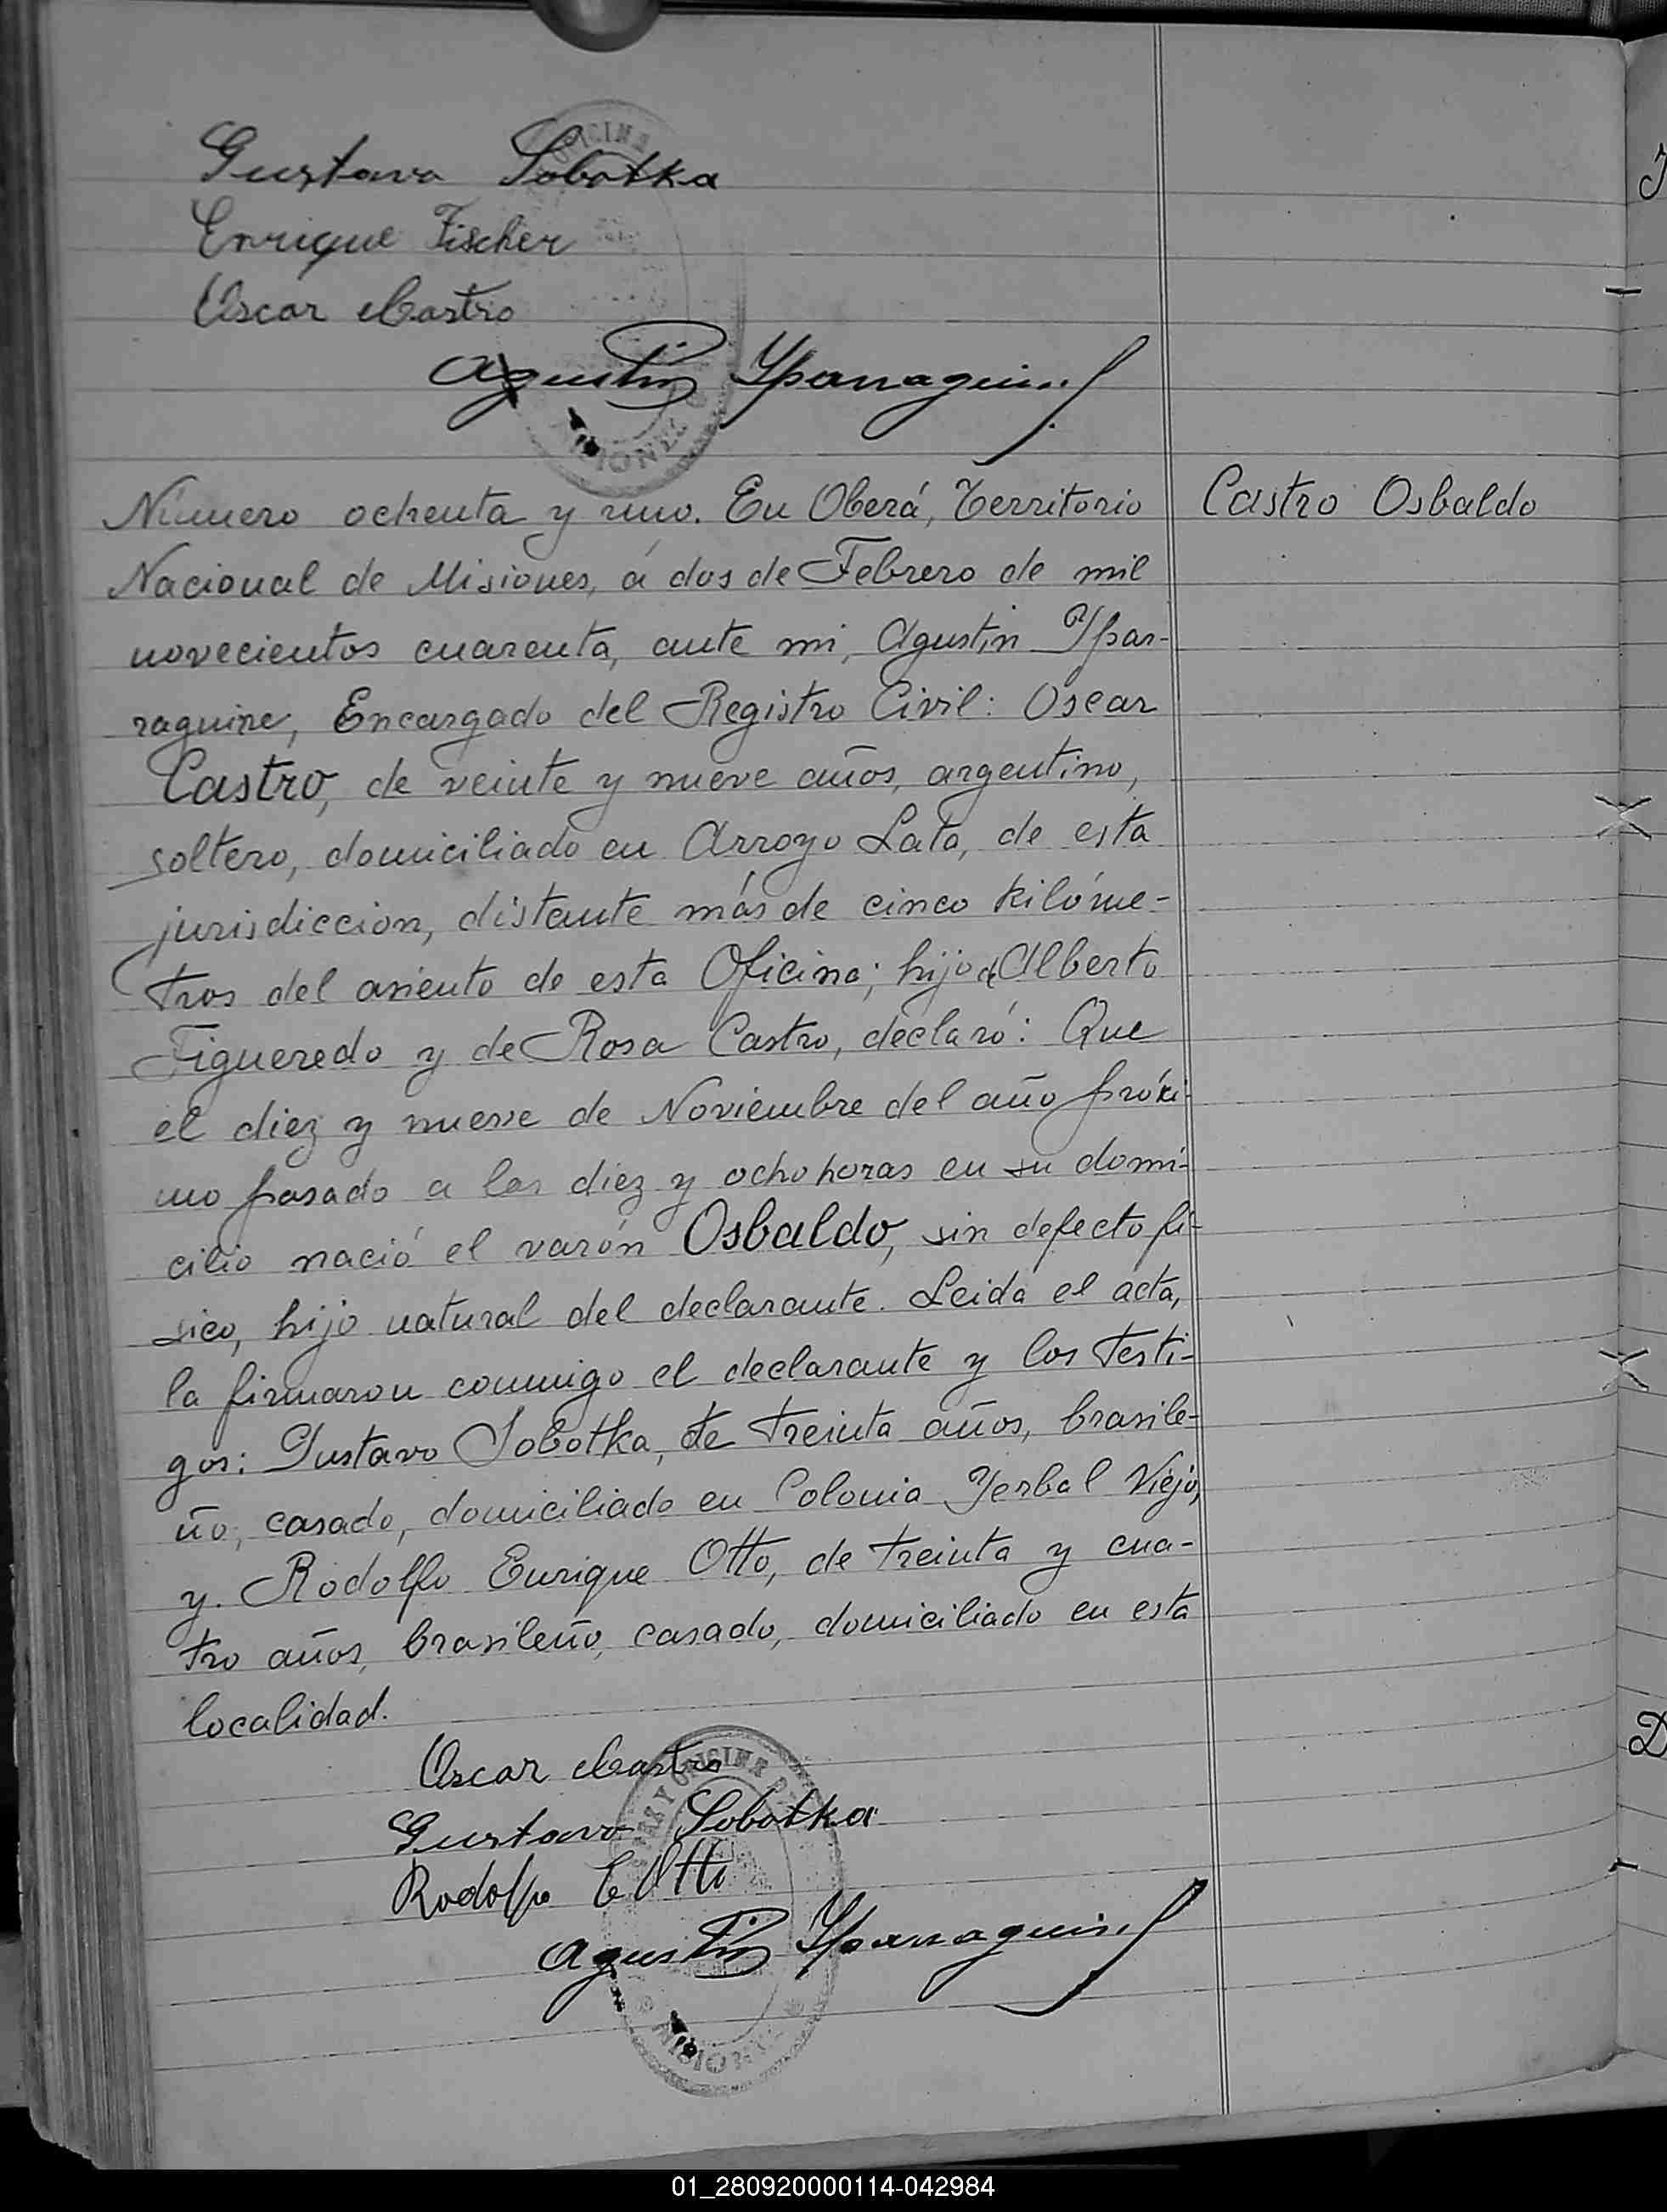 Gustavo Sobotka
Enrique Fischer
Oscar Castro
Agustin Yparraguirre
Número ochenta y uno. En Oberá, Territorio
Castro Osbaldo
Nacional de Misiones, á dos de Febrero de mil
novecientos cuarenta, ante mi, Agustin Ypar-
raguirre, Encargado del Registro Civil: Oscar
Castro, de veinte y nueve años, argentino,
soltero, domiciliado en Arroyo Lata, de esta
jurisdiccion, distante más de cinco kilóme-
tros del asiento de esta Oficina; hijo de Alberto
Figueredo y de Rosa Castro, declaró: Que
el diez y nueve de Noviembre del año próxi-
mo pasado a las diez y ocho horas en su domi-
cilio nació el varón Osbaldo, sin defecto fí-
sico, hijo natural del declarante. Leida el acta,
la firmaron conmigo el declarante y los testi-
gos: Gustavo Sobotka, de treinta años, brasile-
ño, casado, domiciliado en Colonia Yerbal Viejo,
y. Rodolfo Enrique Otto, de treinta y cua-
tro años, brasileño, casado, domiciliado en esta
localidad.
Oscar Castro
Gustavo Sobotka
Rodolfo E Otto
Agustin Yparraguirre
MISIONES
01_280920000114-042984